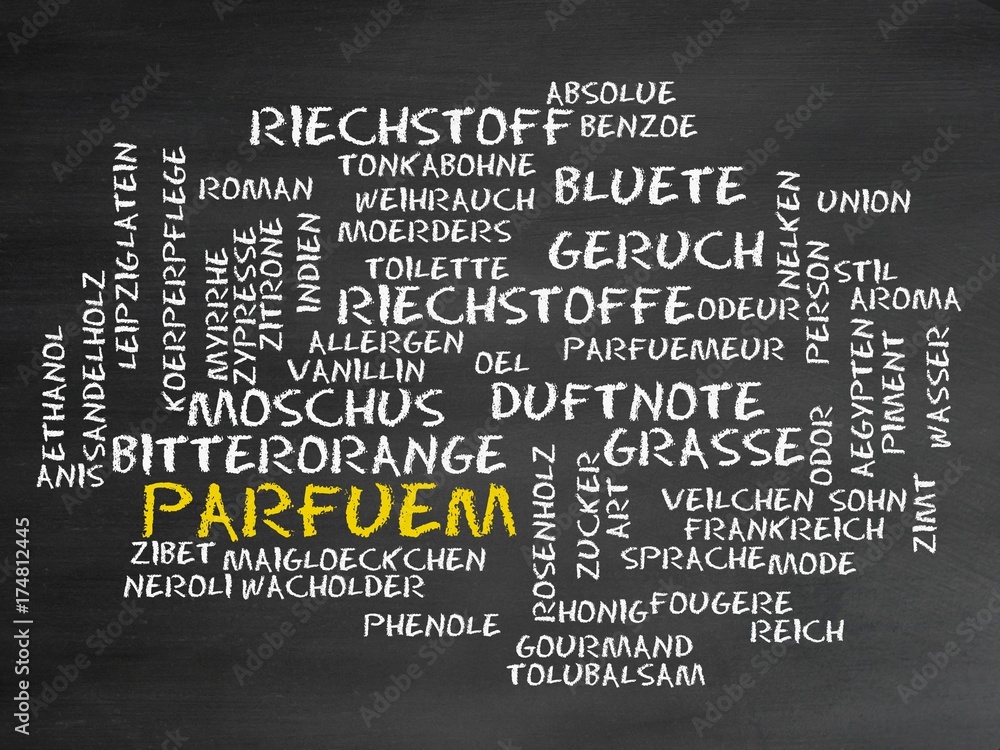 ABSOLUE
RIECHSTOFF
BENZOE
TONKABOHNE
ROMAN
WEIHRAUCH
BLUETE
UNION
MOERDERS
GERUCH
TOILETTE
STIL
RIECHSTOFFE
ODEUR
AROMA
ALLERGEN
PARFUEMEUR
VANILLIN
OEL
MOSCHUS
DUFTNOTE
BITTERORANGE
GRASSE
ANIS
PARFUEM
VEILCHEN
SOHN
FRANKREICH
ZIBET
MAIGLOECKCHEN
SPRACHE
MODE
NEROLI
WACHOLDER
HONIG
FOUGERE
PHENOLE
REICH
GOURMAND
TOLUBALSAM
ETHANOL
SANDELHOLZ
LEIPZIGLATEIN
KOERPERPFLEGE
MYRRHE
ZYPRESSE
ZITRONE
INDIEN
NELKEN
PERSON
AEGYPTEN
PIMENT
WASSER
ODOR
ROSENHOLZ
ZUCKER
ART
ZIMT
Adobe Stock | #174812445
Adobe Stock